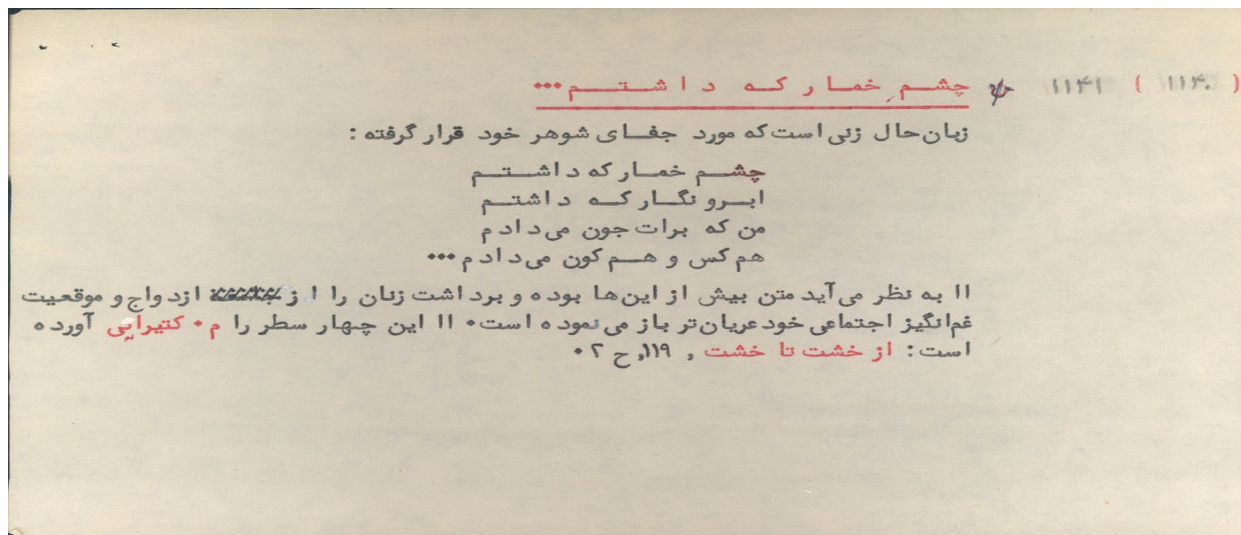 ( ۱۱۴۰ ) ۱۱۴۱ چشم خمار که داشتم...
زبان‌حال زنی‌است‌که مورد جفای شوهر خود قرار گرفته:
چشم خمار که داشتم
ابرو نگار که داشتم
من که برات جون می‌دادم
هم کس و هم کون می‌دادم...
اا به نظر می‌آید متن بیش از این‌ها بوده و برداشت زنان را از ازدواج و موقعیت
غم‌انگیز اجتماعی خود عریان‌تر باز می‌نموده است. اا این چهار سطر را م. کتیرایی آورده
است: از خشت تا خشت , ۱۱۹, ح ۲.